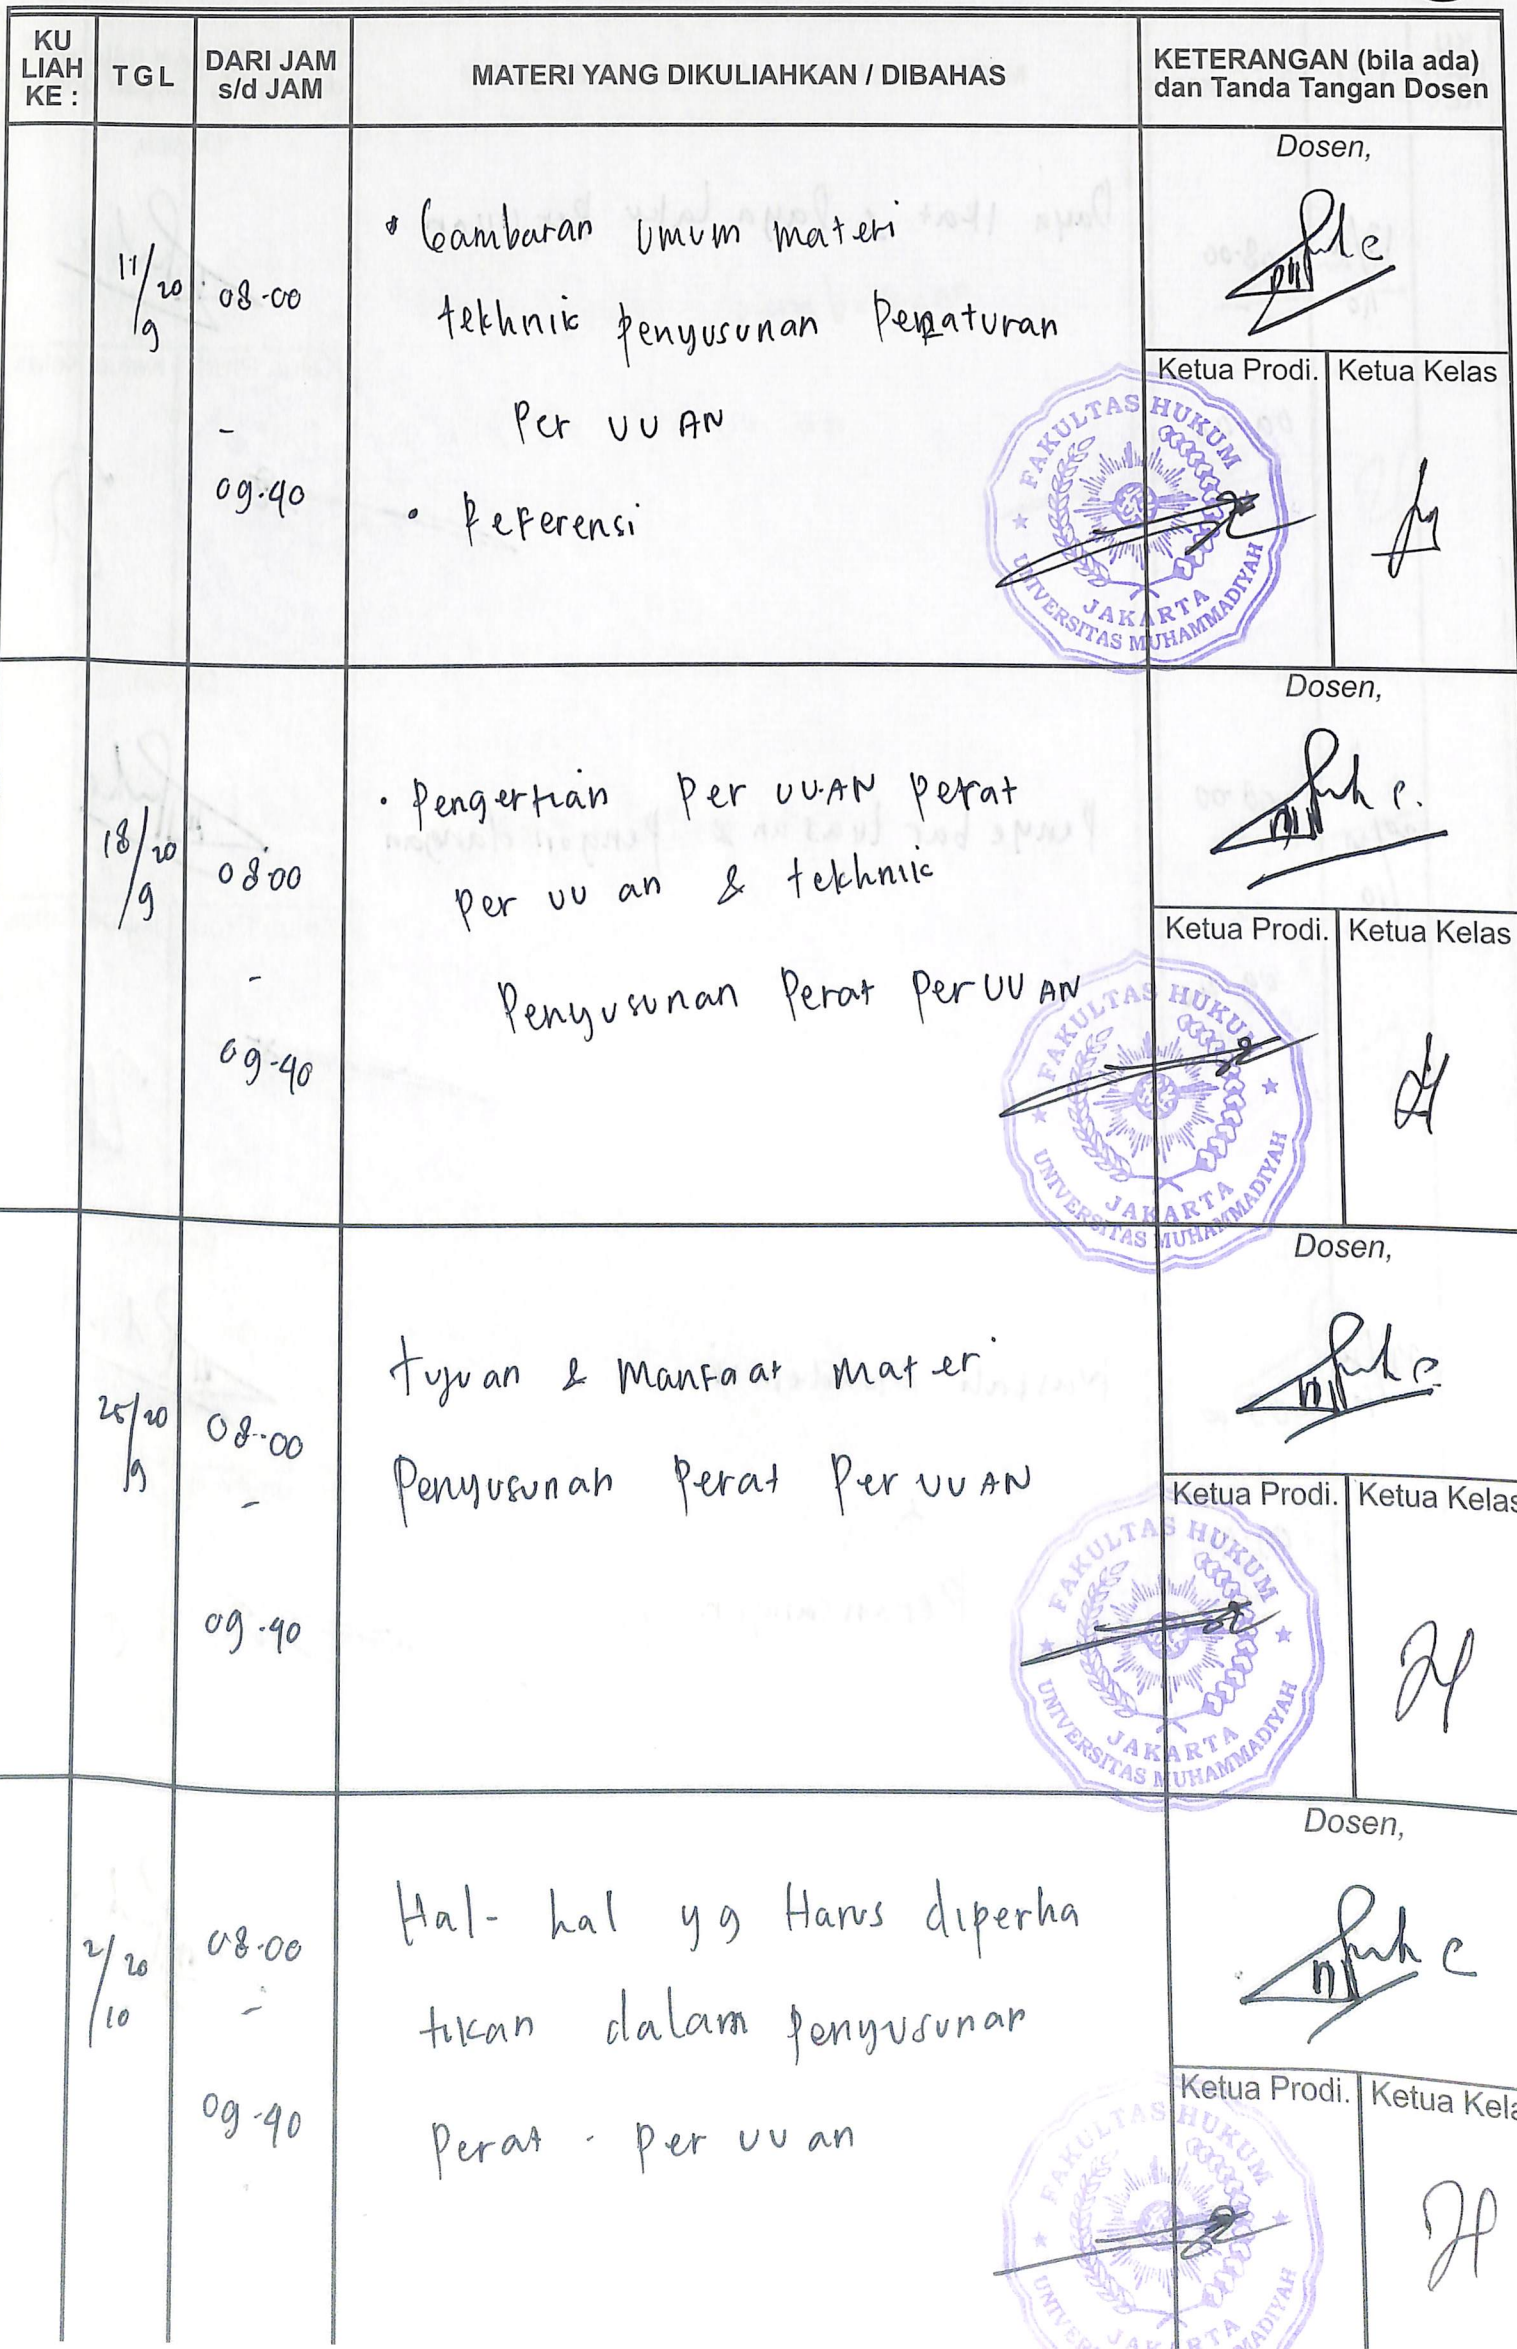 KU LIAH KE :
TGL
DARI JAM s/d JAM
MATERI YANG DIKULIAHKAN / DIBAHAS
KETERANGAN (bila ada) dan Tanda Tangan Dosen
11/9 20
08.00
-
09.40
• Gambaran umum materi
tekhnik penyusunan Peraturan
Per UU AN
• Referensi
Dosen,
Ketua Prodi.
Ketua Kelas
FAKULTAS HUKUM
UNIVERSITAS MUHAMMADIYAH
JAKARTA
18/9 20
08.00
-
09.40
• Pengertian Per UU.AN Perat
per uu an & tekhnik
Penyusunan Perat Per UU AN
Dosen,
Ketua Prodi.
Ketua Kelas
FAKULTAS HUKUM
UNIVERSITAS MUHAMMADIYAH
JAKARTA
25/9 20
08.00
-
09.40
tujuan & Manfaat Materi
Penyusunan Perat Per UU AN
Dosen,
Ketua Prodi.
Ketua Kelas
FAKULTAS HUKUM
UNIVERSITAS MUHAMMADIYAH
JAKARTA
2/10 20
08.00
-
09.40
Hal- hal yg Harus diperha
tikan dalam penyusunan
Perat - per uu an
Dosen,
Ketua Prodi.
Ketua Kela
FAKULTAS HUKUM
JAKARTA